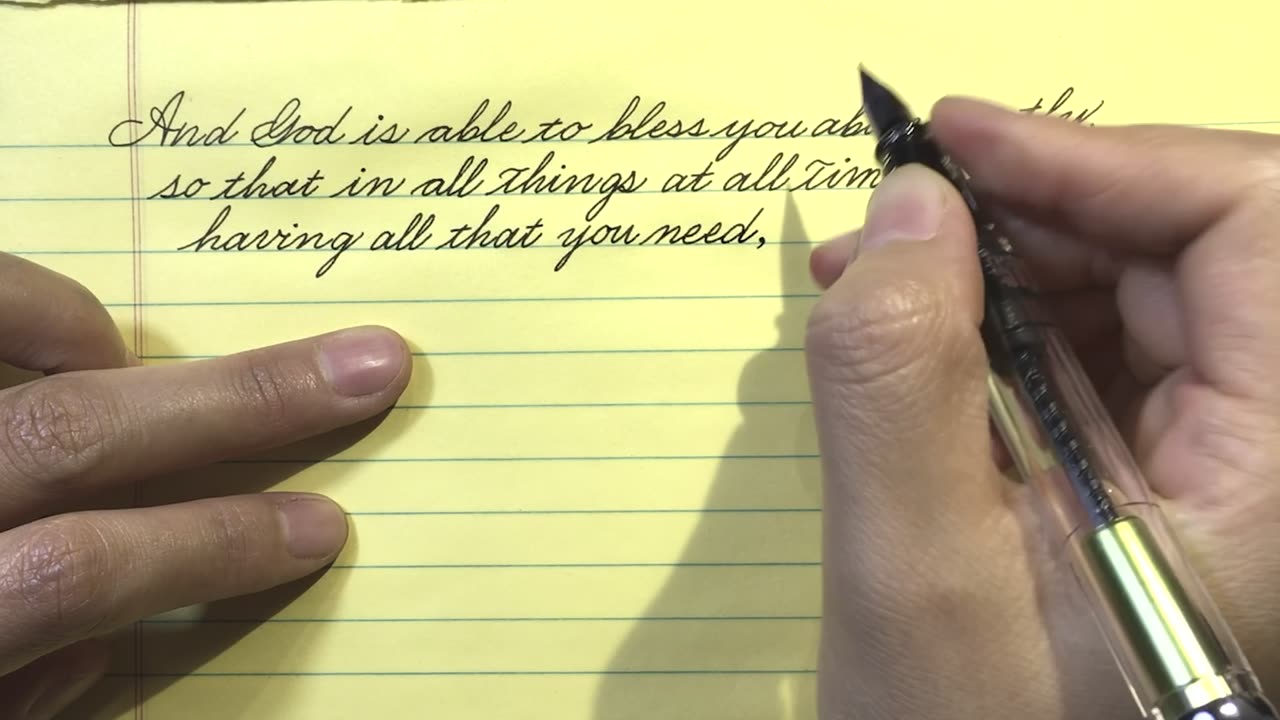 And God is able to bless you
so that in all things at all
having all that you need,